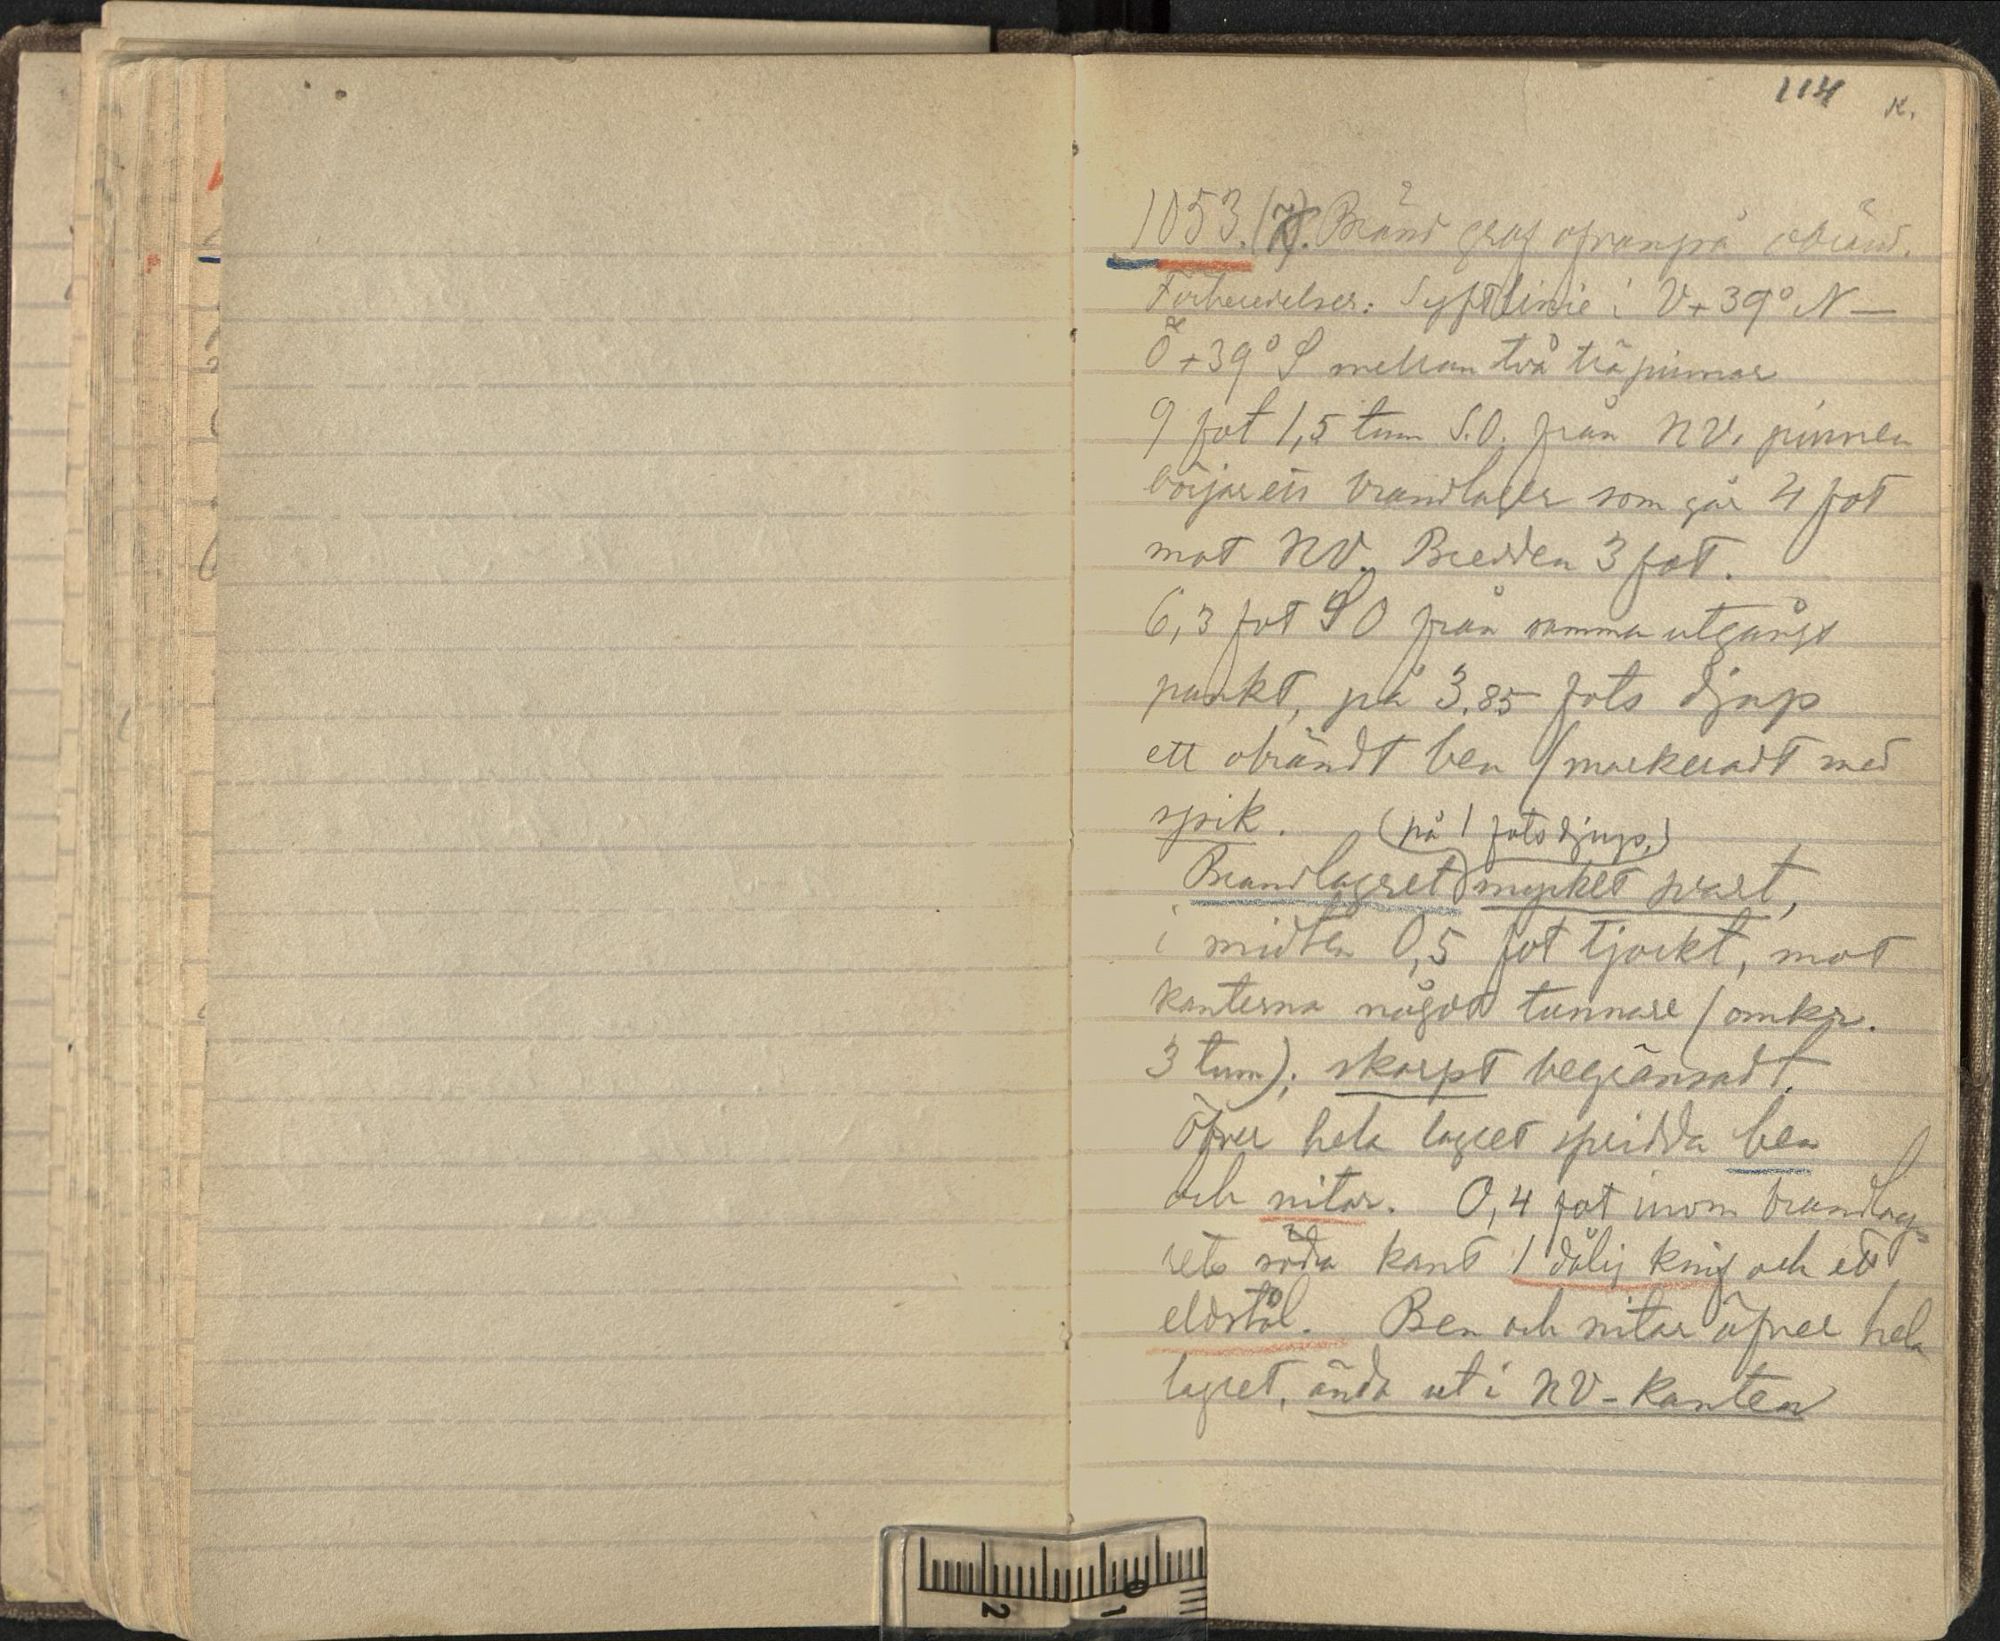 114 K.
1053. (?). Bränd graf ofvanpå obränd.
Förberedelser: Syftlinie i V+39° N —
Ö+39° S mellan två träpinnar
9 fot 1,5 tum S.O. från NV. pinnen
börjar ett brandlager som går 4 fot
mot NV. Bredden 3 fot.
6,3 fot SO från samma utgångs
punkt, på 3,85 fots djup
ett obrändt ben (markeradt med
spik.
(på 1 fots djup.)
Brandlagret mycket svart,
i midten 0,5 fot tjockt, mot
kanterna något tunnare (omkr.
3 tum); skarpt begränsadt.
Öfver hela lagret spridda ben
och nitar. 0,4 fot inom brandlag-
rets södra kant 1 dålig knif och ett
eldstål. Ben och nitar öfver hela
lagret, ända ut i NV-kanten
2 1 0